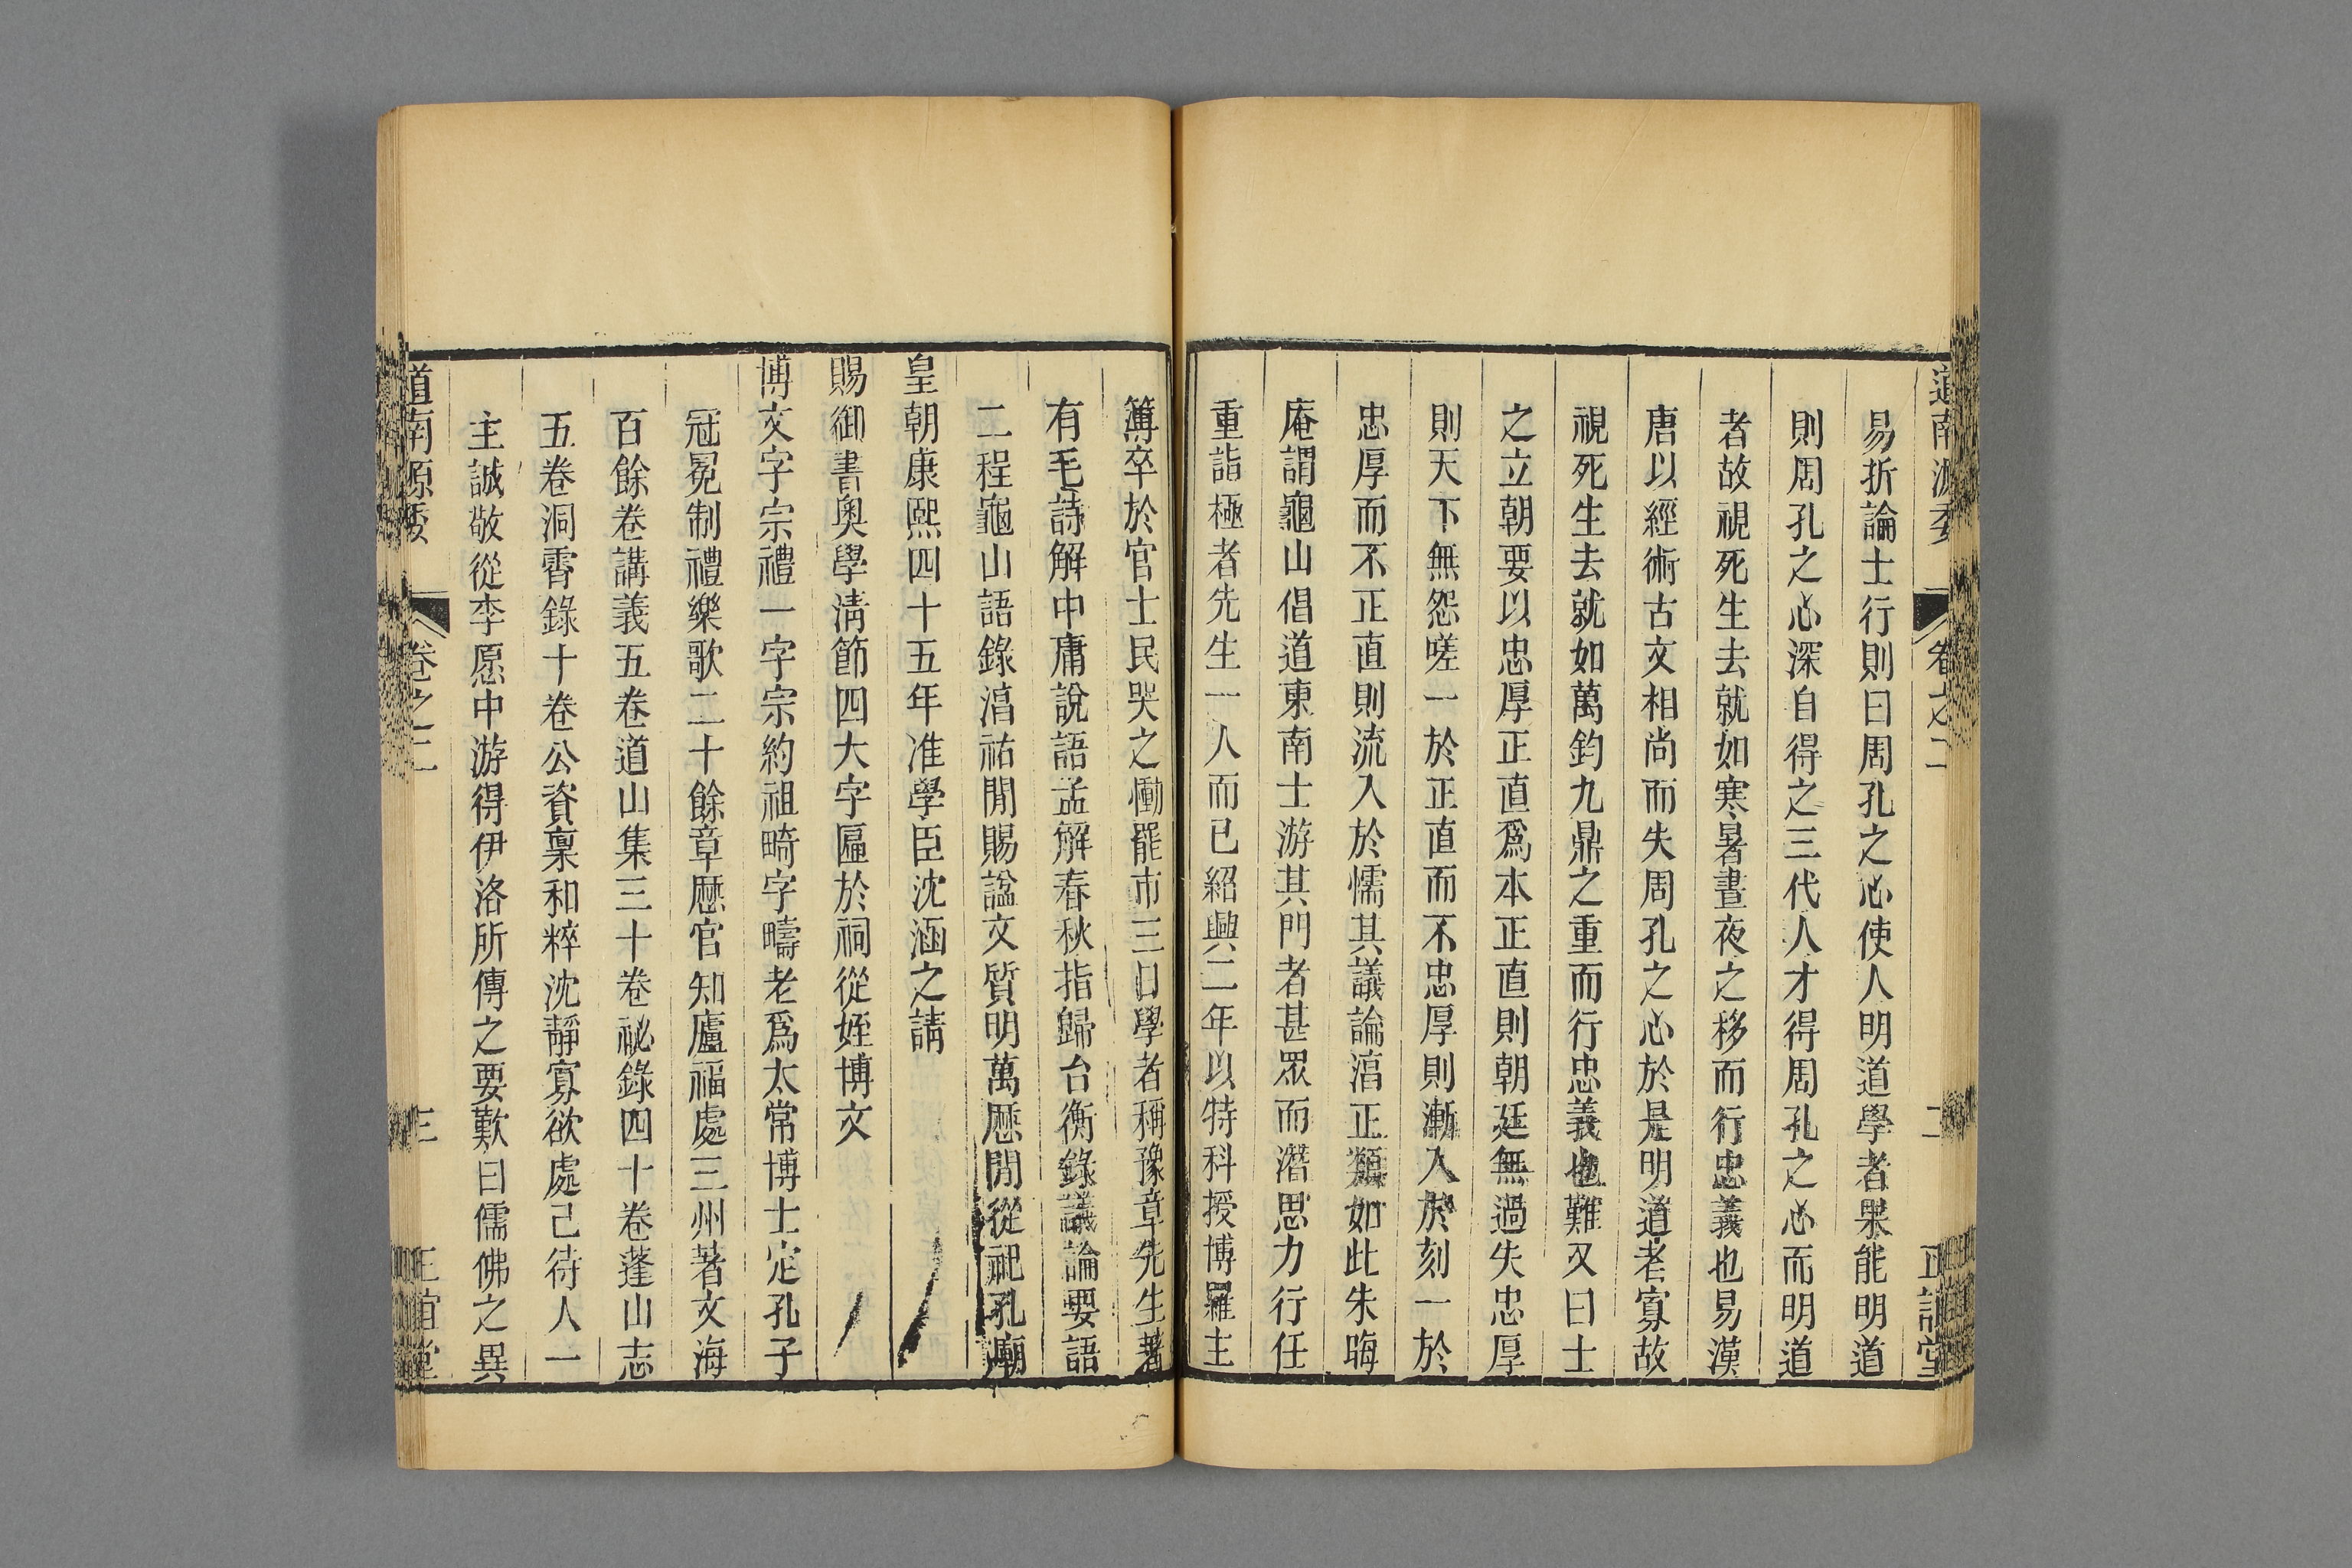 道南源委 卷之二 二 正誼堂
易折論士行則曰周孔之心使人明道學者果能明道
則周孔之心深自得之三代人才得周孔之心而明道
者故視死生去就如寒暑晝夜之移而行忠義也易漢
唐以經術古文相尚而失周孔之心於是明道者寡故
視死生去就如萬鈞九鼎之重而行忠義也難又曰士
之立朝要以忠厚正直爲本正直則朝廷無過失忠厚
則天下無怨嗟一於正直而不忠厚則漸入於刻一於
忠厚而不正直則流入於懦其議論湻正類如此朱晦
庵謂龜山倡道東南士游其門者甚眾而潛思力行任
重詣極者先生一人而已紹興二年以特科授博羅主
簿卒於官士民哭之慟罷市三日學者稱豫章先生著
有毛詩解中庸說語孟解春秋指歸台衡錄議論要語
二程龜山語錄湻祐閒賜諡文質明萬歷閒從祀孔廟
皇朝康熙四十五年准學臣沈涵之請
賜御書奧學淸節四大字匾於祠從姪博文
博文字宗禮一字宗約祖畸字疇老爲太常博士定孔子
冠冕制禮樂歌二十餘章歷官知廬福處三州著文海
百餘卷講義五卷道山集三十卷祕錄四十卷蓬山志
五卷洞霄錄十卷公資稟和粹沈靜寡欲處己待人一
主誠敬從李愿中游得伊洛所傳之要歎曰儒佛之異
道南源委 卷之二 三 正誼堂